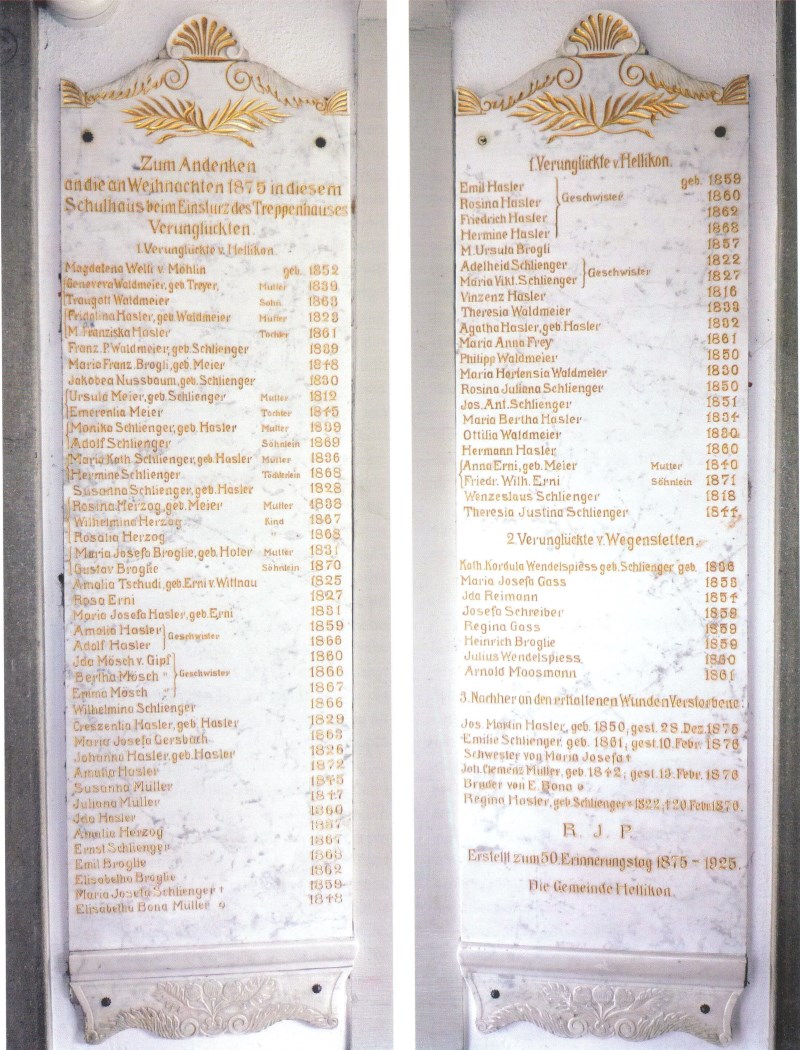 Zum Andenken
an die an Weihnachten 1875 in diesem
Schulhaus beim Einsturz des Treppenhauses
Verunglückten.
1. Verunglückte v. Hellikon.
Magdalena Welti v. Möhlin geb. 1852
Genoveva Waldmeier, geb. Treyer, Mutter 1839
Traugott Waldmeier Sohn 1863
Fridolina Hasler, geb. Waldmeier Mutter 1823
M. Franziska Hasler Tochter 1861
Franz. P. Waldmeier, geb. Schlienger 1839
Maria Franz. Brogli, geb. Meier 1848
Jakobea Nussbaum, geb. Schlienger 1830
Ursula Meier, geb. Schlienger Mutter 1812
Emerentia Meier Tochter 1845
Monika Schlienger, geb. Hasler Mutter 1839
Adolf Schlienger Söhnlein 1869
Maria Kath. Schlienger, geb. Hasler Mutter 1836
Hermine Schlienger Töchterlein 1868
Susanna Schlienger, geb. Hasler 1828
Rosina Herzog, geb. Meier Mutter 1838
Wilhelmina Herzog Kind 1867
Rosalia Herzog " 1868
Maria Josefa Broglie, geb. Hofer Mutter 1831
Gustav Broglie Söhnlein 1870
Amalia Tschudi, geb. Erni v. Wittnau 1825
Rosa Erni 1827
Maria Josefa Hasler, geb. Erni 1831
Amalia Hasler Geschwister 1859
Adolf Hasler 1866
Ida Mösch v. Gipf 1860
Bertha Mösch " Geschwister 1866
Emma Mösch " 1867
Wilhelmina Schlienger 1866
Creszentia Hasler, geb. Hasler 1829
Maria Josefa Gersbach 1863
Johanna Hasler, geb. Hasler 1826
Amalia Hasler 1872
Susanna Müller 1845
Juliana Müller 1847
Ida Hasler 1860
Amalia Herzog
Ernst Schlienger 1867
Emil Broglie 1863
Elisabetha Broglie 1862
Maria Josefa Schlienger † 1859
Elisabetha Bona Müller o 1848
1. Verunglückte v. Hellikon.
Emil Hasler geb. 1859
Rosina Hasler Geschwister 1860
Friedrich Hasler 1862
Hermine Hasler 1868
M. Ursula Brogli 1857
Adelheid Schlienger Geschwister 1822
Maria Vikt. Schlienger 1827
Vinzenz Hasler 1816
Theresia Waldmeier 1833
Agatha Hasler, geb. Hasler 1832
Maria Anna Frey 1861
Philipp Waldmeier 1850
Maria Hortensia Waldmeier 1830
Rosina Juliana Schlienger 1850
Jos. Ant. Schlienger 1851
Maria Bertha Hasler 1834
Ottilia Waldmeier 1830
Hermann Hasler 1860
Anna Erni, geb. Meier Mutter 1840
Friedr. Wilh. Erni Söhnlein 1871
Wenzeslaus Schlienger 1818
Theresia Justina Schlienger 1844
2. Verunglückte v. Wegenstetten.
Kath. Kordula Wendelspiess geb. Schlienger geb. 1836
Maria Josefa Gass 1853
Ida Reimann 1854
Josefa Schreiber 1858
Regina Gass 1859
Heinrich Broglie 1859
Julius Wendelspiess 1860
Arnold Moosmann 1861
3. Nachher an den erhaltenen Wunden Verstorbene:
Jos. Martin Hasler, geb. 1850, gest. 28. Dez. 1875
Emilie Schlienger, geb. 1861, gest. 10. Febr. 1876
Schwester von Maria Josefa †
Joh. Clemenz Müller, geb. 1842, gest. 13. Febr. 1876
Bruder von E. Bona o
Regina Hasler, geb. Schlienger * 1822, † 20. Febr. 1876.
R. J. P.
Erstellt zum 50. Erinnerungstag 1875 - 1925.
Die Gemeinde Hellikon.